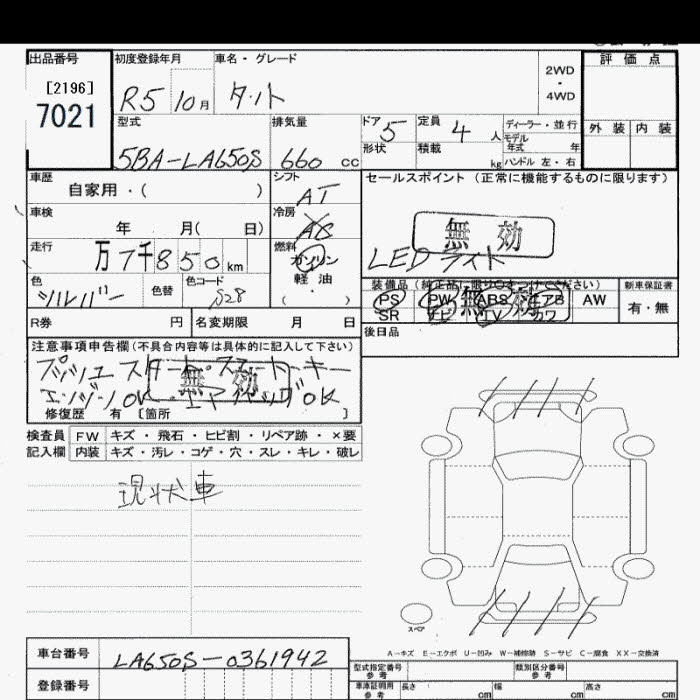 出品番号 初度登録年月 車名・グレード 2WD ・ 4WD 評価点
[2196]
7021 R5 10月 タント
型式 排気量 ドア 5 定員 4人 ディーラー・並行 外装 内装
5BA-LA650S 660 cc 形状 積載 kg モデル年式 年 ハンドル 左・右
車歴 シフト セールスポイント(正常に機能するものに限ります)
自家用・( ) AT
車検 冷房 無効
年 月( 日) AC LEDライト
走行 万7千850km 燃料 ガソリン 装備品(純正品に限り○をつけてください) 新車保証書
色 色替 色コード 軽油 PS PW ABS エアB AW 有・無
シルバー S28 ( ) SR ナビ TV カワ 無効
R券 円 名変期限 月 日 後日品
注意事項申告欄(不具合内容等は具体的に記入して下さい)
プッシュスタート・スマートキー 無効
エンジンOK エアバッグOK
修復歴 有〔箇所 〕
検査員 FW キズ・飛石・ヒビ割・リペア跡・×要
記入欄 内装 キズ・汚レ・コゲ・穴・スレ・キレ・破レ
現状車
スペア
A-キズ E-エクボ U-凹み W-補修跡 S-サビ C-腐食 XX-交換済
車台番号 LA650S-0361942 型式指定番号 参考 類別区分番号 参考
登録番号 車庫証明用 参考 長さ cm 幅 cm 高さ cm